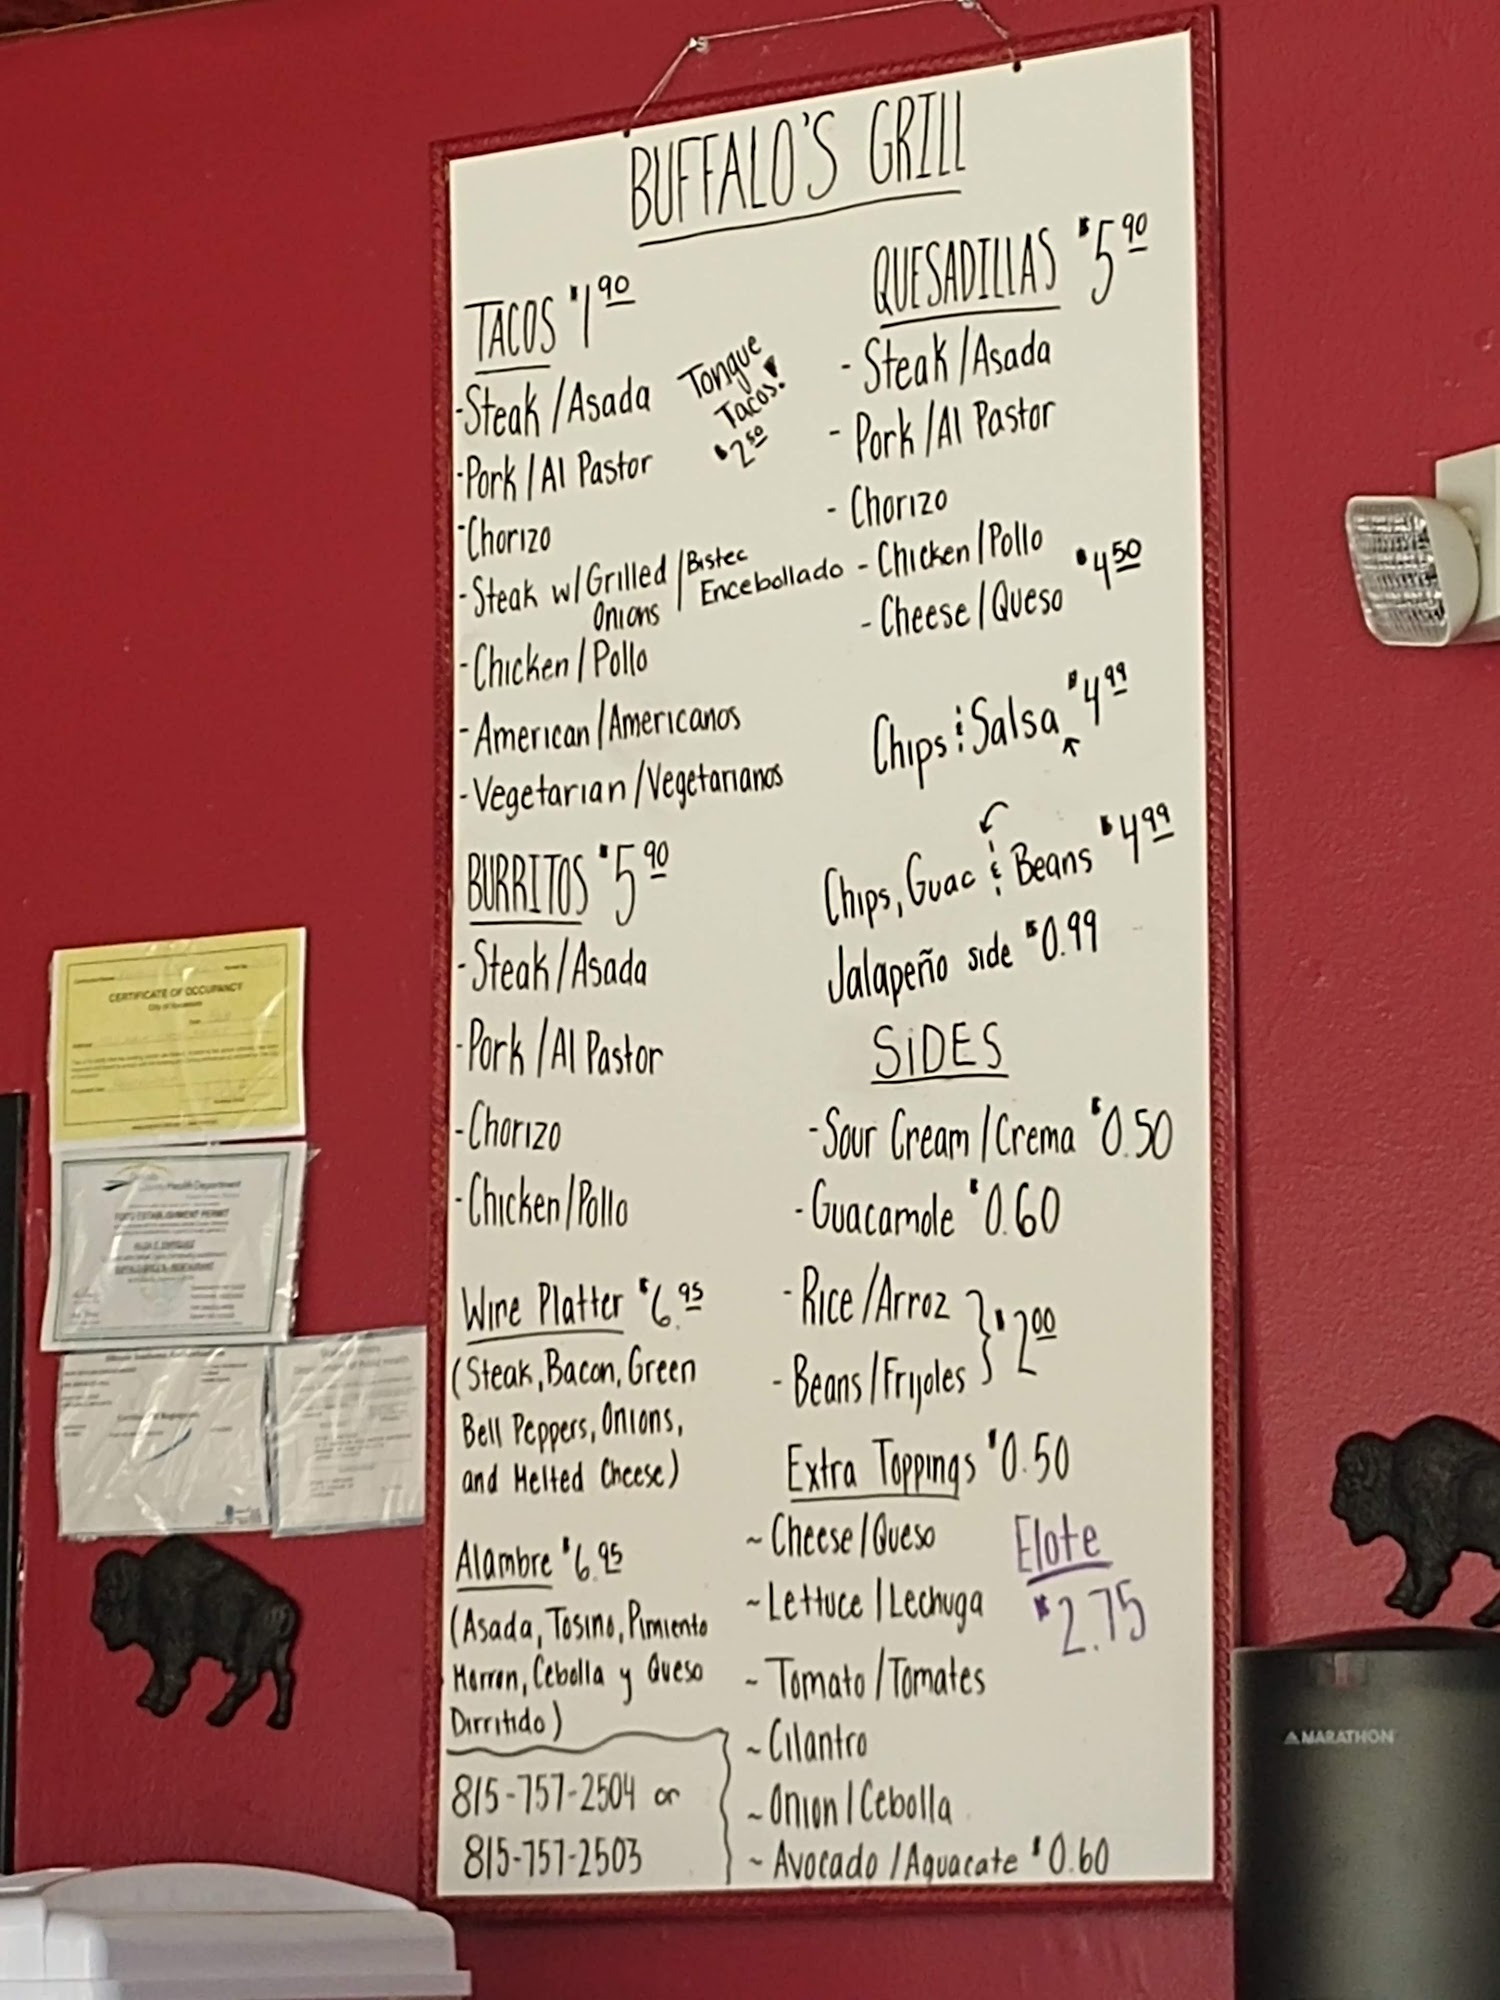 BUFFALO'S GRILL
TACOS $1.90
-Steak/Asada
-Pork/Al Pastor
-Chorizo
-Steak w/Grilled Onions/Bistec Encebollado
-Chicken/Pollo
-American/Americanos
-Vegetarian/Vegetarianos
Tongue
Tacos!
$2.50
BURRITOS $5.90
-Steak/Asada
-Pork/Al Pastor
-Chorizo
-Chicken/Pollo
Wire Platter $6.95
(Steak, Bacon, Green
Bell Peppers, Onions,
and Melted Cheese)
Alambre $6.95
(Asada, Tosino, Pimiento
Morron, Cebolla y Queso
Dirritido)
815-757-2504 or
815-757-2503
QUESADILLAS $5.90
- Steak/Asada
- Pork/Al Pastor
- Chorizo
- Chicken/Pollo
- Cheese/Queso $4.50
Chips & Salsa $4.99
Chips, Guac & Beans $4.99
Jalapeño side $0.99
SiDES
-Sour Cream/Crema $0.50
-Guacamole $0.60
-Rice/Arroz
-Beans/Frijoles } $2.00
Extra Toppings $0.50
~Cheese/Queso
~Lettuce/Lechuga
~Tomato/Tomates
~Cilantro
~Onion/Cebolla
~Avocado/Aguacate $0.60
Elote
$2.75
CERTIFICATE OF OCCUPANCY
Health Department
FOOD ESTABLISHMENT PERMIT
MARATHON